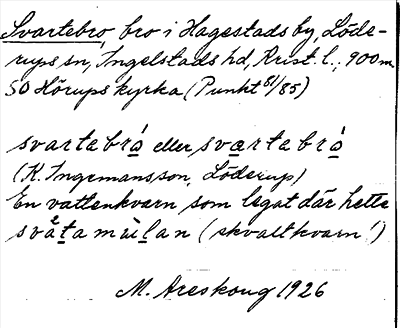 Svartebro bro i Hagestads by, Löde-
rups sn, Ingelstads hd, Krist. l.; 900 m
SO Hörups kyrka (Punkt 81/85)
svartebró eller svartebró
(K. Ingemansson, Löderup)
En vattenkvarn som legat där hette
svåtamùlan (skvaltkvarn!)
M. Areskoug 1926